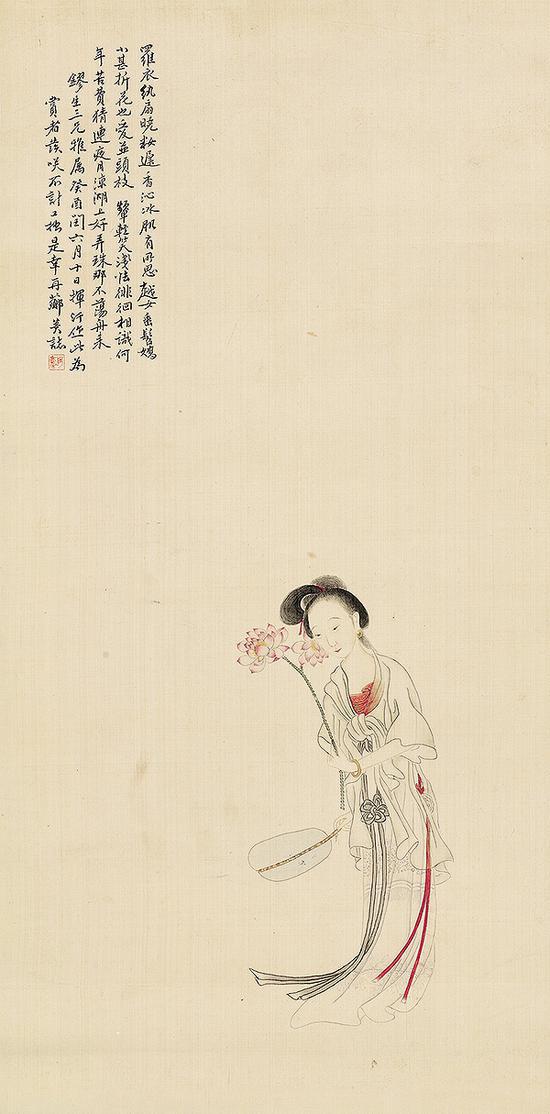 羅衣紈扇晚妝遲香沁冰肌有所思越女垂髫嬌
小甚折花也愛並頭枝 顰輕笑淺怯徘徊相識何
年苦費猜連夜月涼湖上好弄珠那不蕩舟来
鏐生三兄雅属癸酉閏六月十日揮汗作此為
賞者發咲不計工拙是幸再薌英誌